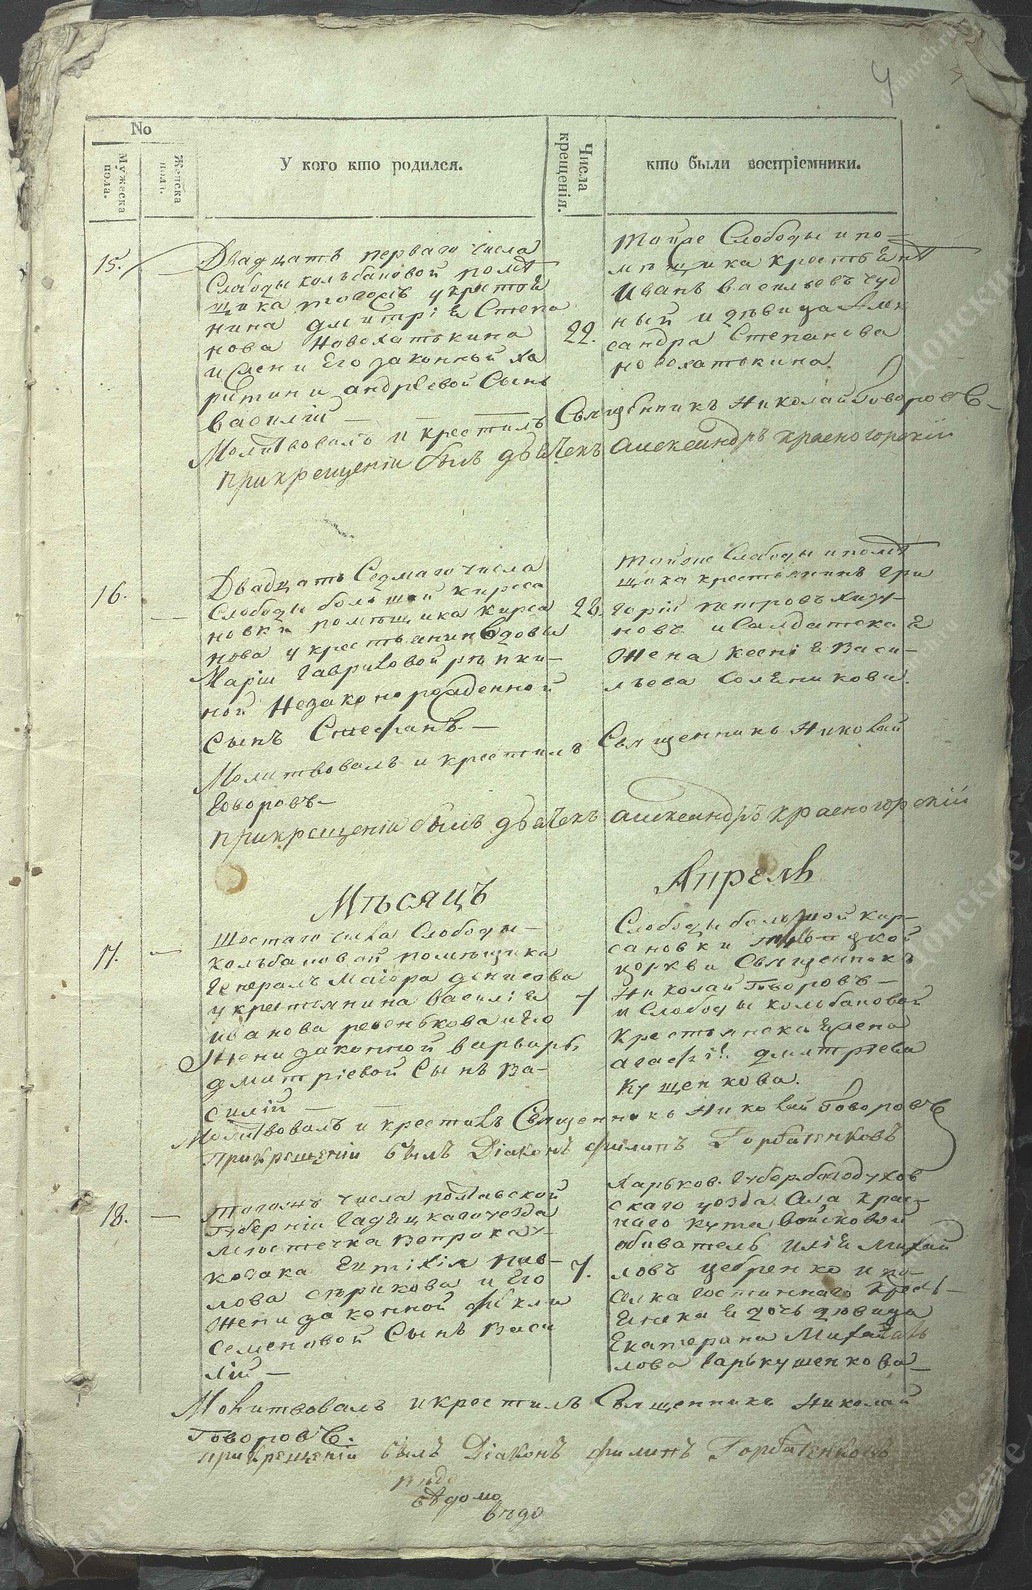 4
No
Мужеска пола.
Женска пола.
У кого кто родился.
Числа крещенія.
кто были воспріемники.
15.
Двадцать перваго числа
Слободы колъбановой помѣ
щика
укрестья
нина Дмитрія Степа
нова Новохатькина
и жени Его законный Ха
ритини андрѣевой Сынъ
василій —
22.
тойже Слободы и по=
мѣщика крестьянѣ
Иванъ васильевъ чуд
ный и дѣвица Алек
сандра Степанова
новохатькина.
Молитвовалъ и крестилъ Священникъ Николай Говоровъ —
прикрещеніи былъ дьячекъ Александръ красногорскій
16.
—
Двадцать Седмаго числа
Слободы большой кирса
новки помѣщика кирса
нова укрестьянин вдовы
Маріи Гавриловой рѣпки—
ной Незаконорожденной
Сынъ Стефанъ —
28.
тойже Слободы и помѣ
щика крестьянинъ Гри
горій петровъ
новъ и Салдатская
Жена ксенія Васи—
льева Солѣникова.
Молитвовалъ и крестилъ Священникъ Николай
Говоровъ —
прикрещеніи былъ дьячекъ Александръ красногорскій
Мѣсяцъ Апрель
17.
—
Шестаго числа Слободы —
колъбановой помѣщика
Генералъ Маіора денисова
укрестьянина василія
иванова ребенькова и Его
Жени законной варвары
дмитріевой Сынъ Ва—
силій —
7
Слободы большой кир—
сановки троицкой
церкви Священникъ
Николай Говоровъ —
и Слободы колъбановой
крестьянская жена
агафія дмитріева
кущенкова.
Молитвовалъ и крестилъ Священникъ Николай Говоровъ
прикрещеніи былъ Діаконъ филипъ Горбатенковъ
18.
—
тогожъ числа полтавской
Губерніи Гадяцкаго уезда
Местечка Веприка
козака Еυтихія пав—
лова сѣрикова и Его
Жени законной феклы
Семеновой Сынъ Васи
лій —
7.
Харьков: Губер: богодухов
скаго уезда Сла крас—
наго кута войсковой
обиватель Илія Михай
ловъ цебренко и по—
Елка гостиннаго кресть—
Енская дочь дѣвица
Екатерина Михайл
лова варькушенкова —
Молитвовалъ и крестилъ Священникъ Николай
Говоровъ.
прикрещеніи былъ Діаконъ филипъ Горбатенковъ